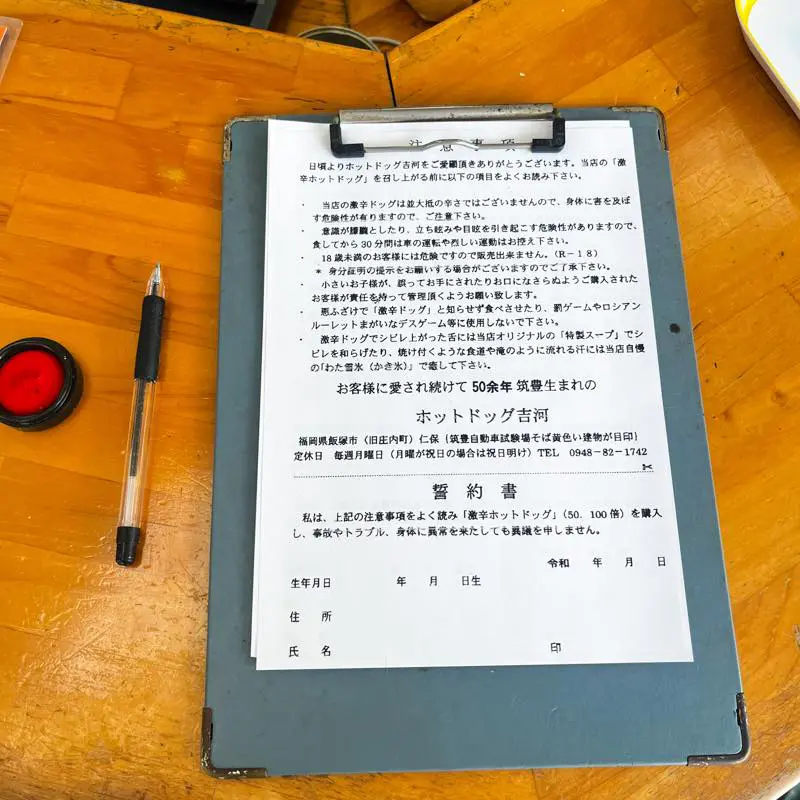 注意事項
日頃よりホットドッグ吉河をご愛顧頂きありがとうございます。当店の「激
辛ホットドッグ」を召し上がる前に以下の項目をよくお読み下さい。
・ 当店の激辛ドッグは並大抵の辛さではございませんので、身体に害を及ぼ
す危険性が有りますので、ご注意下さい。
・ 意識が朦朧としたり、立ち眩みや目眩を引き起こす危険性がありますので、
食してから30分間は車の運転や烈しい運動はお控え下さい。
・ 18歳未満のお客様には危険ですので販売出来ません。（R－18）
＊ 身分証明の提示をお願いする場合がございますのでご了承下さい。
・ 小さいお子様が、誤ってお手にされたりお口になさらぬようご購入された
お客様が責任を持って管理頂くようお願い致します。
・ 悪ふざけで「激辛ドッグ」と知らせず食べさせたり、罰ゲームやロシアン
ルーレットまがいなデスゲーム等に使用しないで下さい。
・ 激辛ドッグでシビレ上がった舌には当店オリジナルの「特製スープ」でシ
ビレを和らげたり、焼け付くような食道や滝のように流れる汗には当店自慢
の「わた雪氷（かき氷）」で癒して下さい。
お客様に愛され続けて 50余年 筑豊生まれの
ホットドッグ吉河
福岡県飯塚市（旧庄内町）仁保｛筑豊自動車試験場そば黄色い建物が目印｝
定休日 毎週月曜日（月曜が祝日の場合は祝日明け）TEL 0948－82－1742
誓約書
私は、上記の注意事項をよく読み「激辛ホットドッグ」（50．100倍）を購入
し、事故やトラブル、身体に異常を来たしても異議を申しません。
令和 年 月 日
生年月日 年 月 日生
住 所
氏 名 印